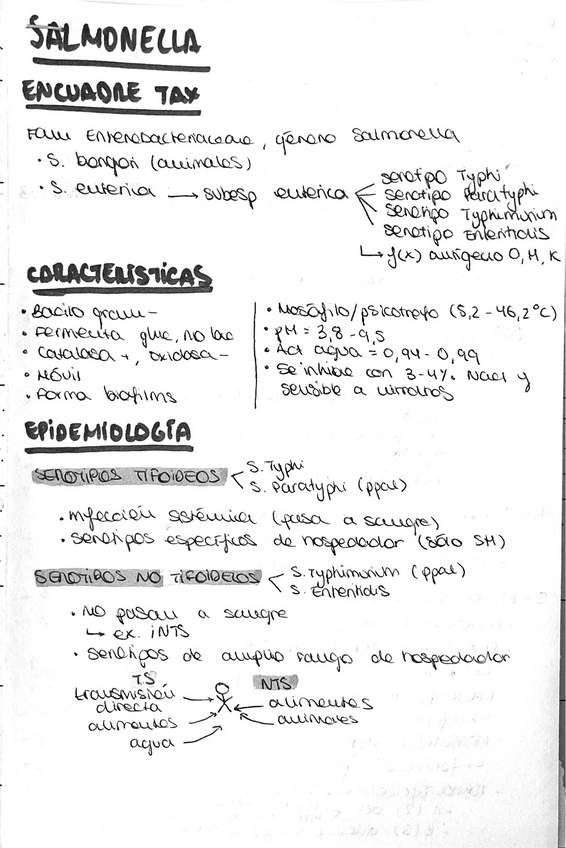 SALMONELLA
ENCUADRE TAX
Fam Enterobacteriaceae, género Salmonella
· S. bongori (animales)
· S. enterica → subesp enterica
serotipo Typhi
serotipo Paratyphi
serotipo Typhimurium
serotipo Enteritidis
↳ f(x) antígeno O, H, K
CARACTERÍSTICAS
· Bacilo gram-
· Fermenta gluc, no lac
· Catalasa +, oxidasa -
· Móvil
· Forma biofilms
· Mesófilo/psicotrofo (5,2 - 46,2°C)
· pH = 3,8 - 9,5
· Act agua = 0,94 - 0,99
· Se inhibe con 3-4% NaCl y
sensible a nitratos
EPIDEMIOLOGÍA
SEROTIPOS TIFOIDEOS
S. Typhi
S. Paratyphi (ppal)
· infección sistémica (pasa a sangre)
· serotipos específicos de hospedador (sólo SH)
SEROTIPOS NO TIFOIDEOS
S. Typhimurium (ppal)
S. Enteritidis
· NO pasan a sangre
↳ ex. iNTS
· serotipos de amplio rango de hospedador
TS
transmisión
directa
alimentos
agua
NTS
alimentos
animales